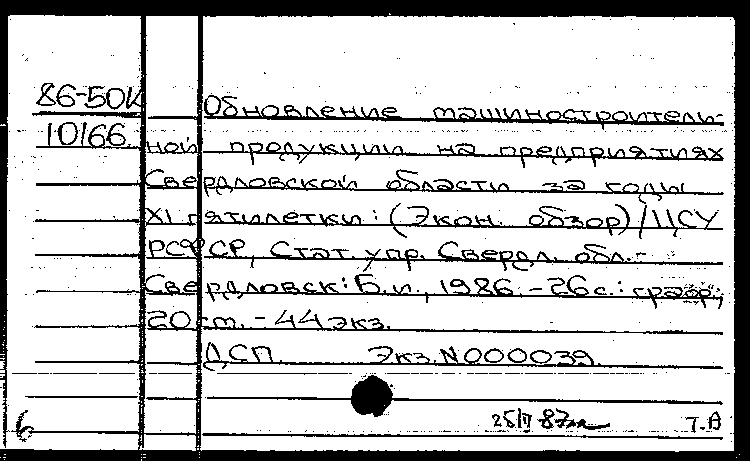 86-50к Обновление машиностроитель-
10166 ной продукции на предприятиях
Свердловской области за годы
XI пятилетки: (Экон. обзор)/ЦСУ
РСФСР, Стат. упр. Свердл. обл.-
Свердловск: Б.и., 1986.-26с.: граф.;
20см.-44экз.
ДСП. Экз.N000039.
87
6 Т.А